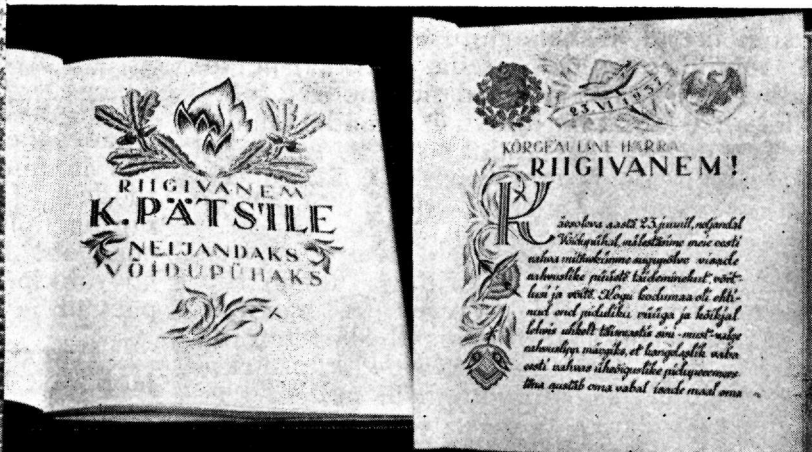 RIIGIVANEM
K. PÄTS'ILE
NELJANDAKS
VÕIDUPÜHAKS
23.VI.1937
KÕRGEAULINE HÄRRA
RIIGIVANEM!
Käesoleva aasta 23. juunil, neljandal
Võidupühal, mälestasime meie eesti
rahva mitmekümne sugupõlve visade
rahvuslike püüete täideminekut, võit-
lusi ja võitu. Kogu kodumaa oli ehti-
nud end piduliku rüüga ja kõikjal
lehvis uhkelt sini-must-valge
rahvuslipp märgiks, et kangelaslik vaba
eesti rahvas üheõiguslike
austab oma vabal isade maal oma